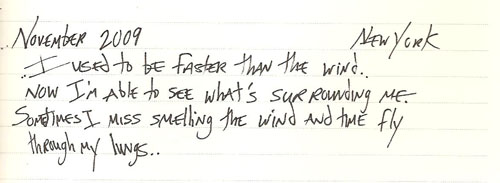 November 2009 New York
..I used to be faster than the wind..
now I'm able to see what's surrounding me.
Sometimes I miss smelling the wind and time fly
through my lungs..